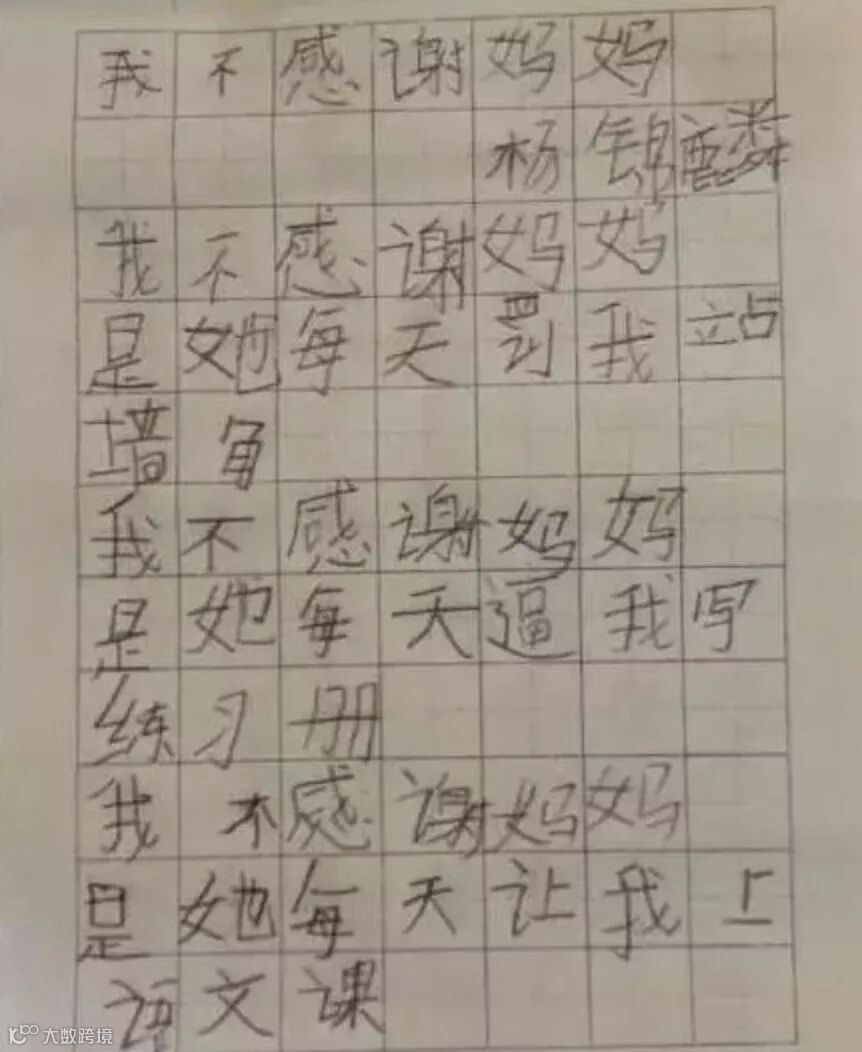 我不感谢妈妈
杨锦麟
我不感谢妈妈
是她每天罚我站
墙角
我不感谢妈妈
是她每天逼我写
练习册
我不感谢妈妈
是她每天让我上
语文课
大数跨境